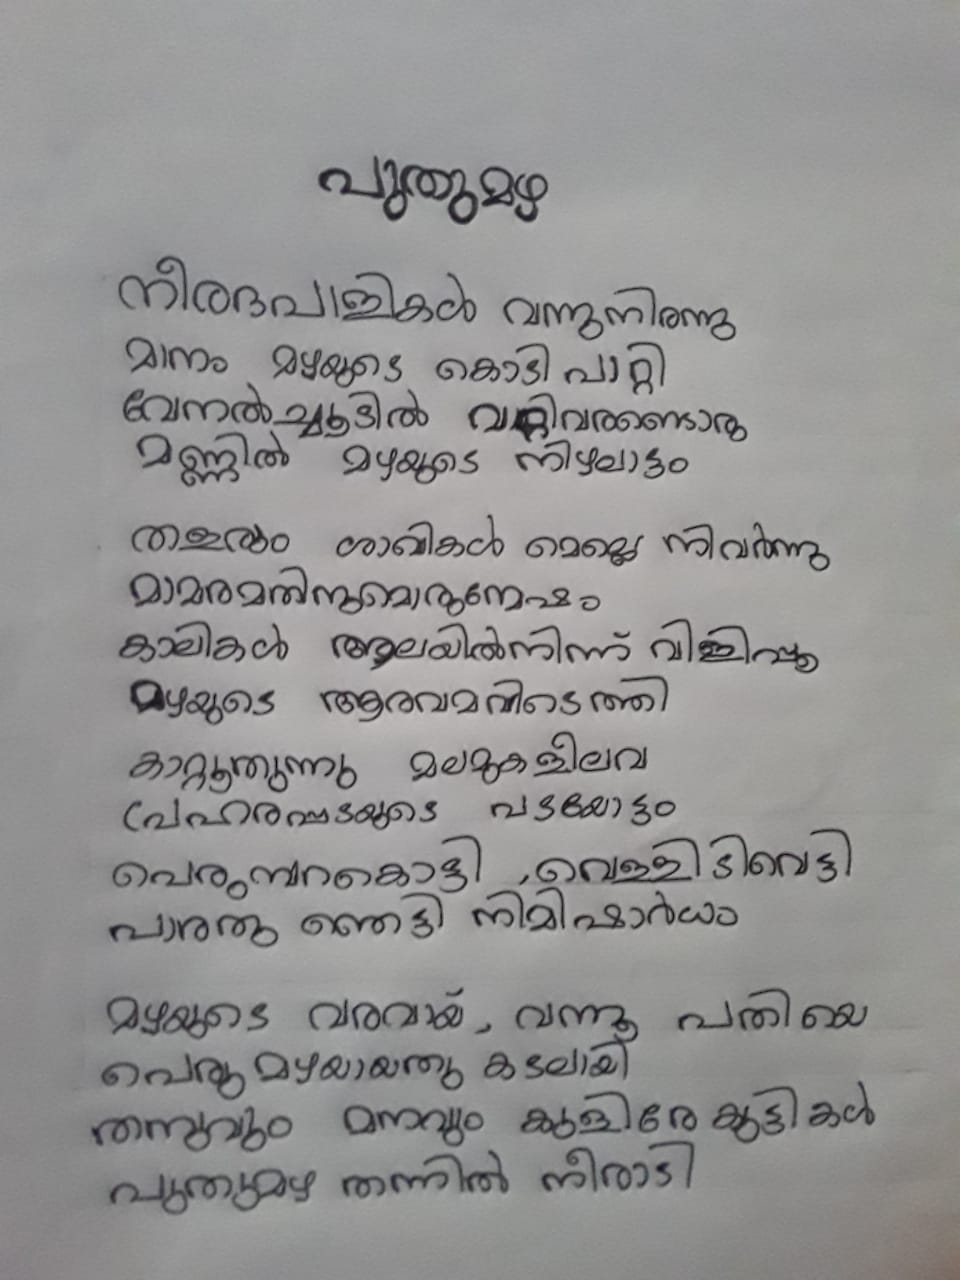 പുതുമഴ
നീരദപാളികൾ വന്നുനിരന്നു
മാനം മഴയുടെ കൊടി പാറ്റി
വേനൽച്ചൂടിൽ വറ്റിവരണ്ടൊരു
മണ്ണിൽ മഴയുടെ നിഴലാട്ടം
തളരും ശാഖികൾ മെല്ലെ നിവർന്നു
മാമരമതിനുമൊരുന്മേഷം
കാലികൾ ആലയിൽനിന്ന് വിളിപ്പൂ
മഴയുടെ ആരവമവിടെത്തി
കാറ്റൂതുന്നു മലമുകളീലവ
പ്രേഹരപ്പടയുടെ പടയോട്ടം
പെരുമ്പറകൊട്ടി ,വെള്ളിടിവെട്ടി
പാരതു ഞെട്ടി നിമിഷാർധം
മഴയുടെ വരവായ്, വന്നൂ പതിയെ
പെരുമഴയായതു കടലായി
തനുവും മനവും കുളിരേ കുട്ടികൾ
പുതുമഴ തന്നിൽ നീരാടി